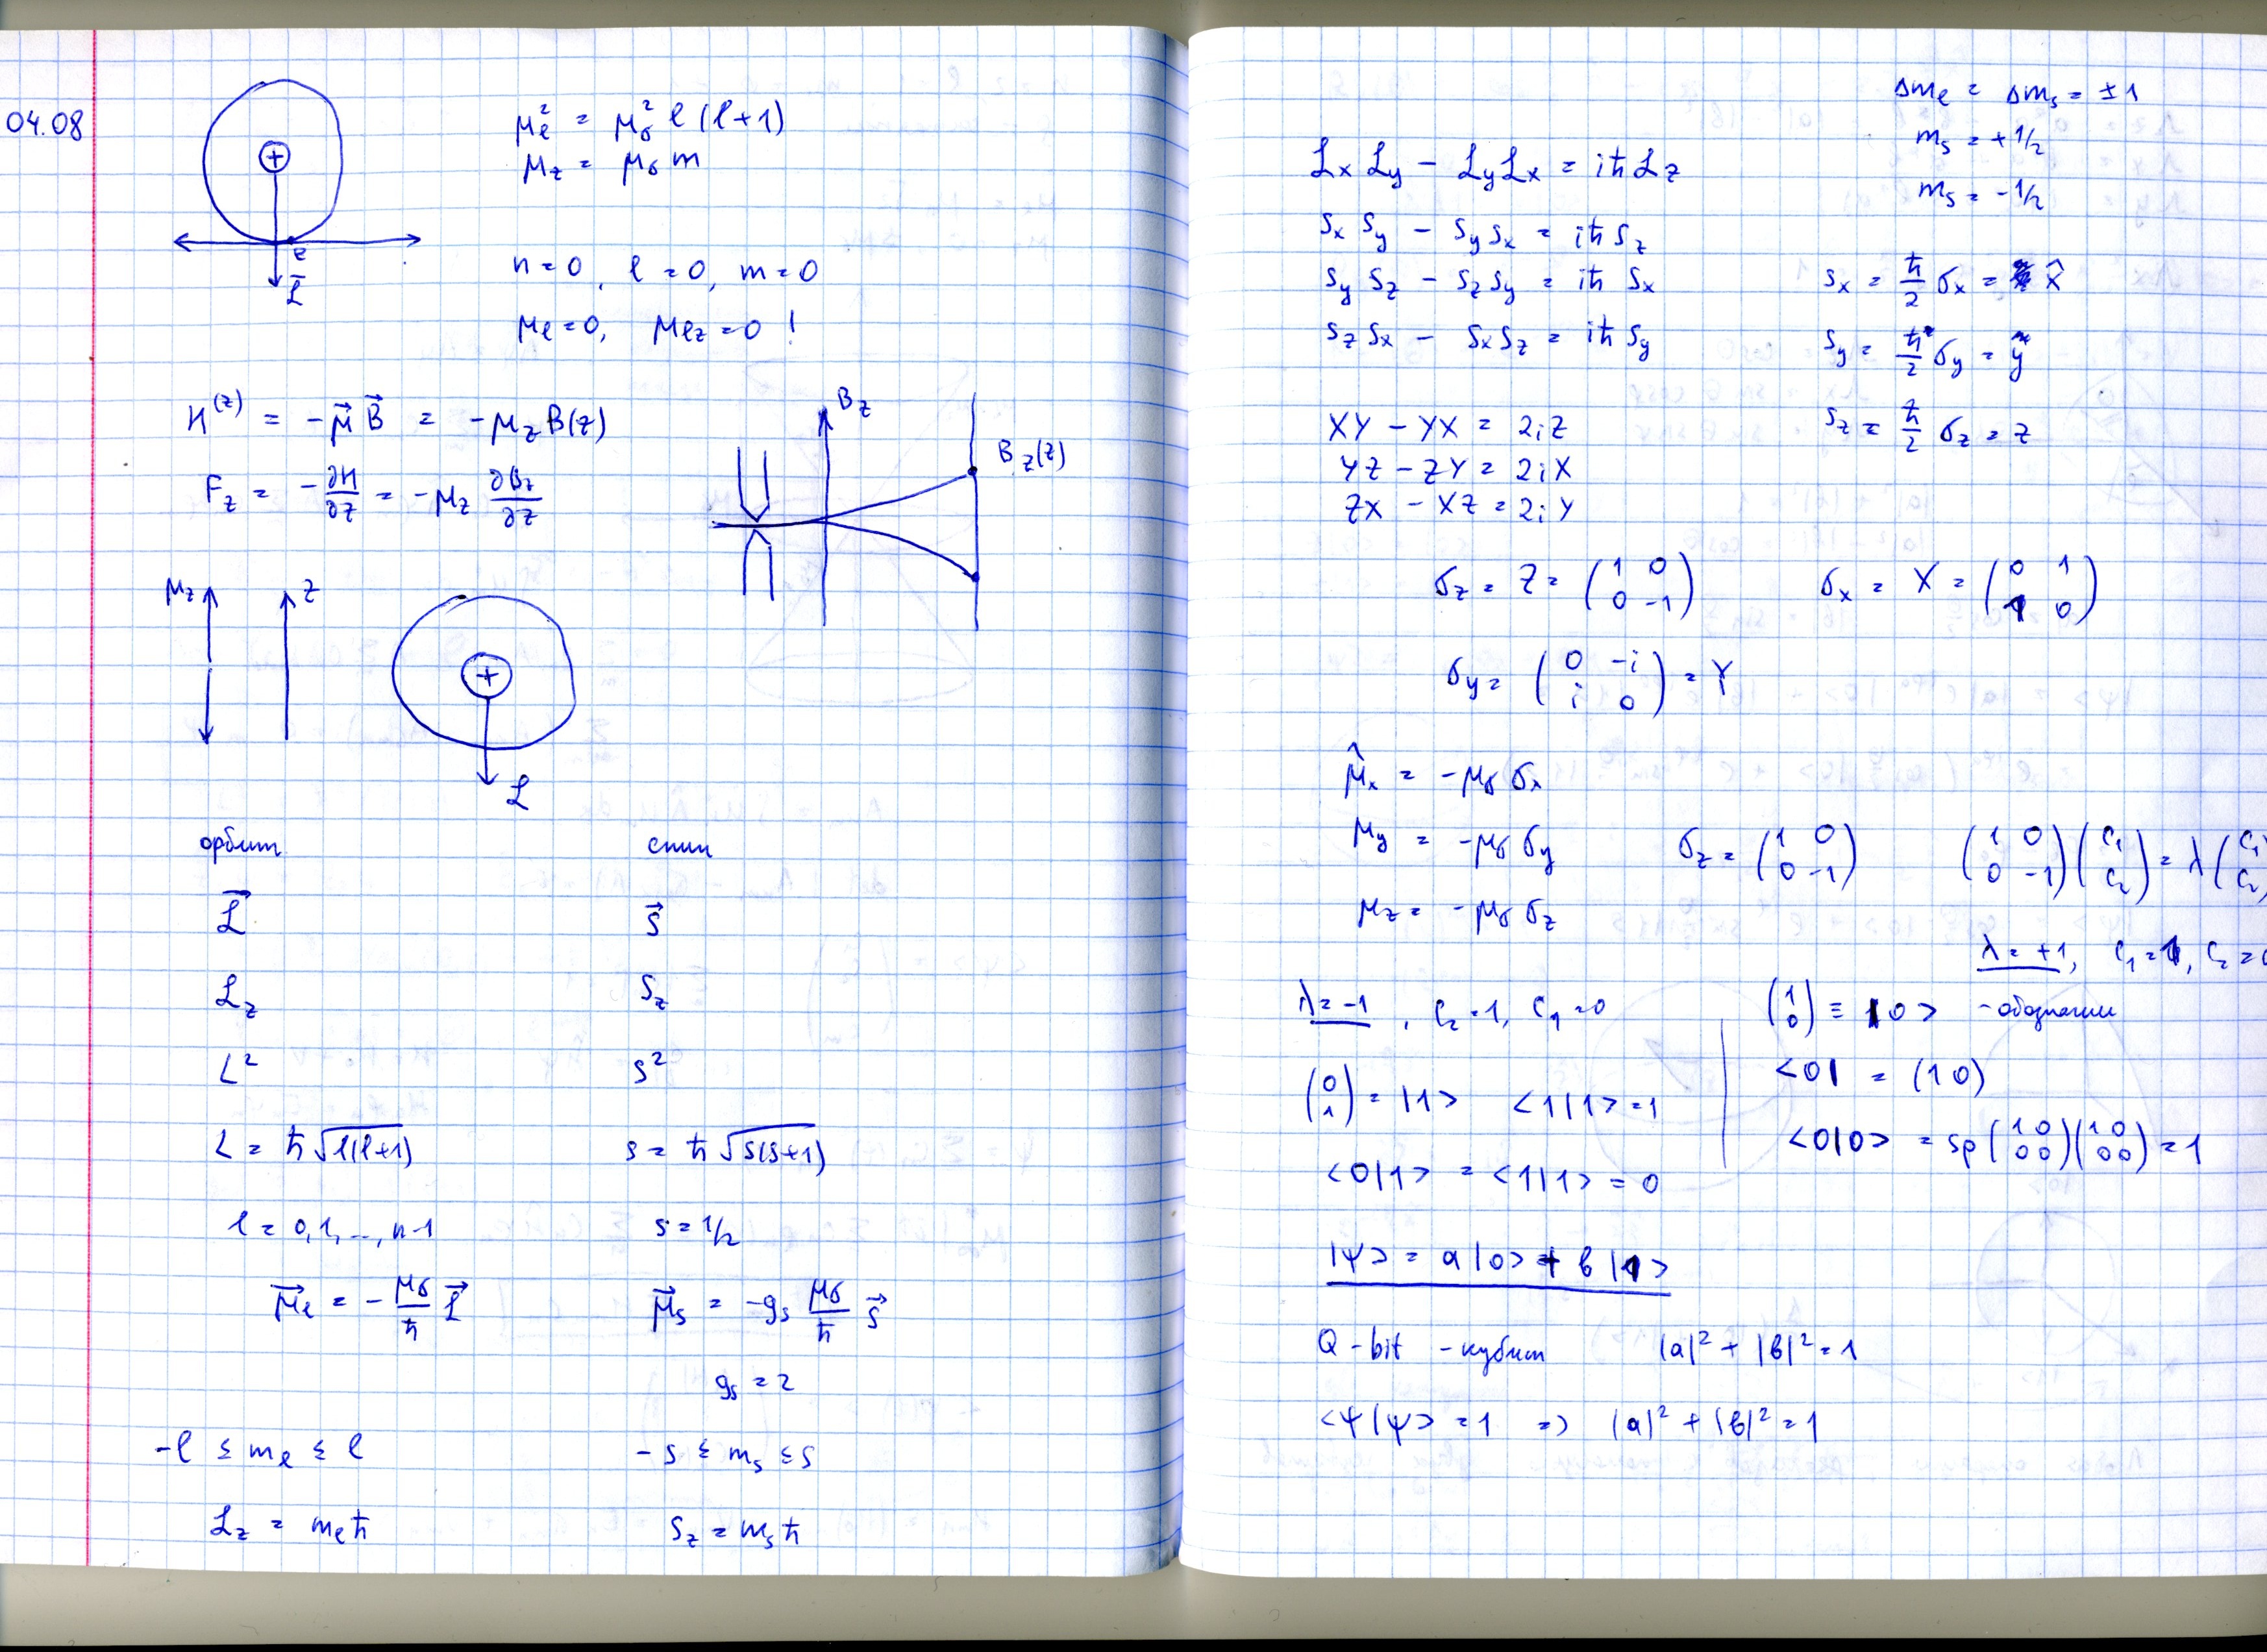 04.08
μₑ² = μб² l (l+1)
μz = μб m
+
e
L̄
n = 0, l = 0, m = 0
μₑ = 0, μₑz = 0 !
H⁽ᶻ⁾ = -μ⃗ B⃗ = -μz B(z)
Fz = -∂H/∂z = -μz ∂Bz/∂z
Bz
Bz(z)
μz
z
+
L
орбит спин
L⃗ s⃗
Lz Sz
L² s²
L = ħ √l(l+1) s = ħ √s(s+1)
l = 0, 1, ..., n-1 s = 1/2
μ⃗ₑ = - μб/ħ L⃗ μ⃗s = -gs μб/ħ s⃗
gs = 2
-l ≤ mₑ ≤ l -s ≤ ms ≤ s
Lz = mₑħ Sz = msħ
Δmₑ = Δms = ±1
ms = +1/2
ms = -1/2
Lx Ly - Ly Lx = iħ Lz
Sx Sy - Sy Sx = iħ Sz
Sy Sz - Sz Sy = iħ Sx
Sz Sx - Sx Sz = iħ Sy
Sx = ħ/2 σx = x̂
Sy = ħ/2 σy = ŷ
Sz = ħ/2 σz = z
XY - YX = 2iZ
YZ - ZY = 2iX
ZX - XZ = 2iY
σz = Z = (1 0; 0 -1) σx = X = (0 1; 1 0)
σy = (0 -i; i 0) = Y
μ̂x = -μб σx
μy = -μб σy
μz = -μб σz
σz = (1 0; 0 -1) (1 0; 0 -1)(c₁; c₂) = λ(c₁; c₂)
λ = +1, c₁ = 1, c₂ = 0
λ = -1, c₂ = 1, c₁ = 0
(0; 1) = |1> <1|1> = 1
<0|1> = <1|1> = 0
(1; 0) ≡ |0>
<0| = (1 0)
<0|0> = Sp (1 0; 0 0)(1 0; 0 0) = 1
|ψ> = a |0> + b |1>
Q-bit - кубит |a|² + |b|² = 1
<ψ|ψ> = 1 => |a|² + |b|² = 1